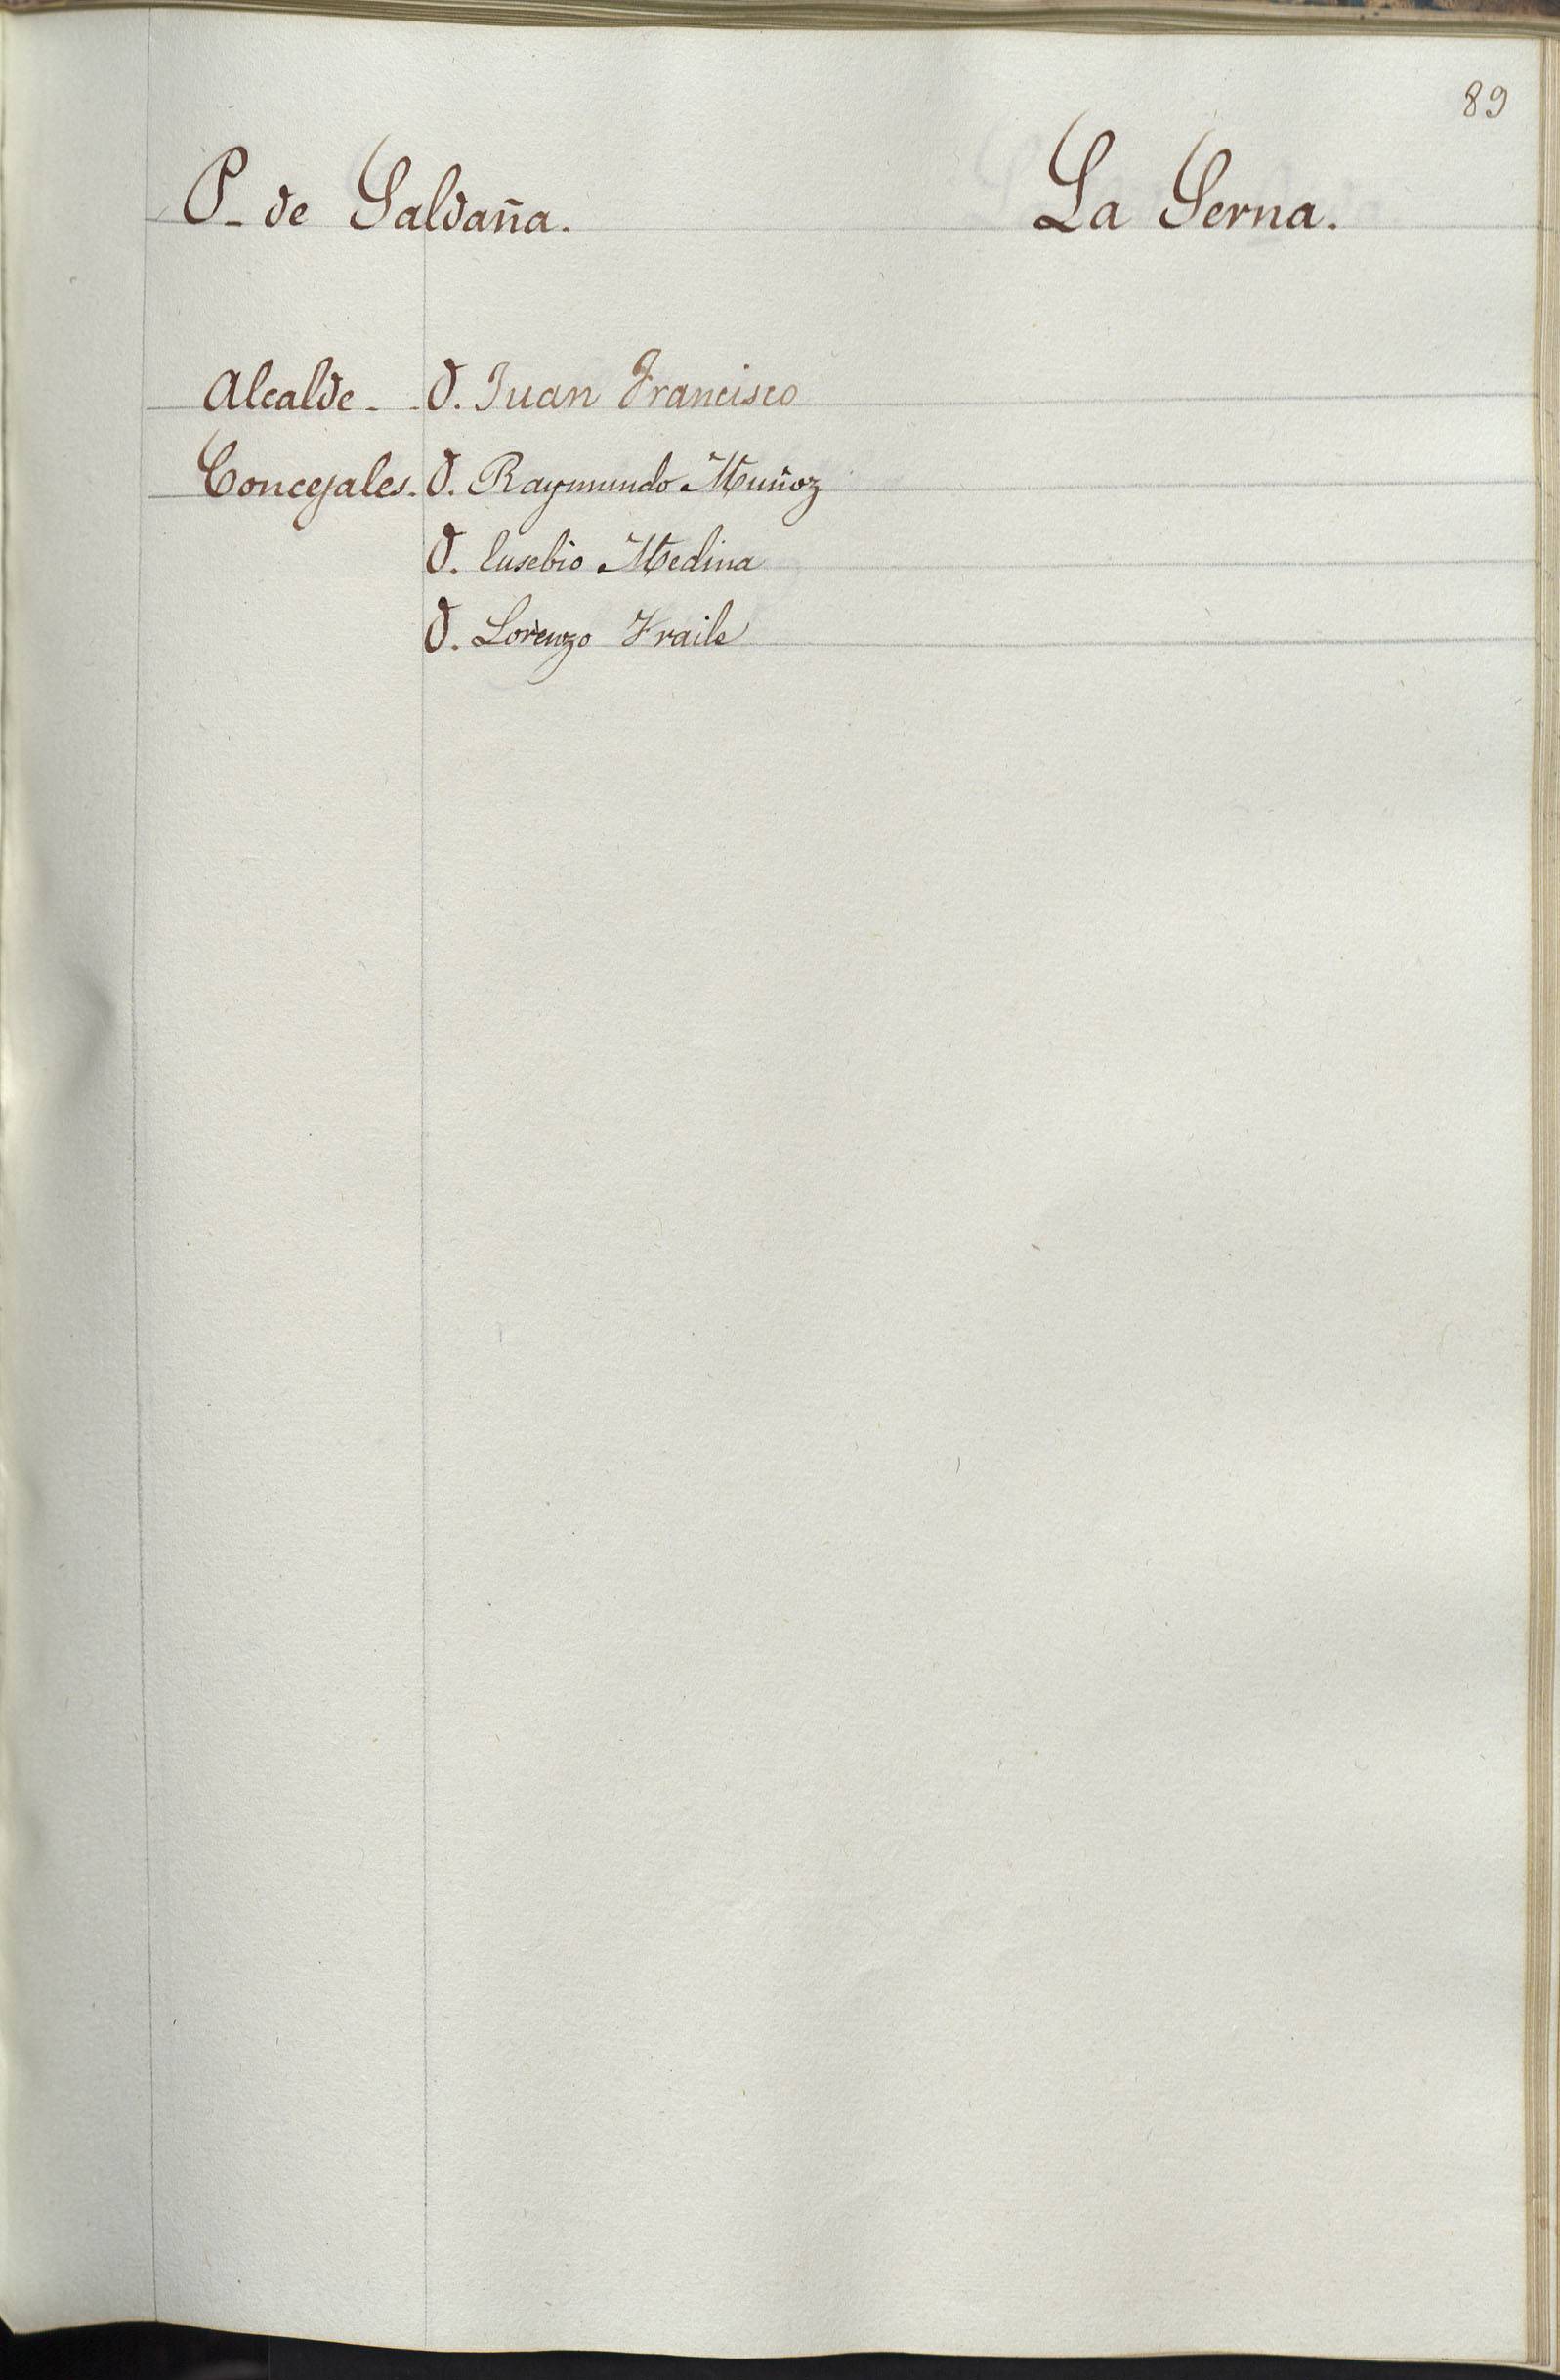 89
P. de Saldaña. La Serna.
Alcalde - - D. Juan Francisco
Concejales. D. Raymundo Muñoz
D. Eusebio Medina
D. Lorenzo Fraile